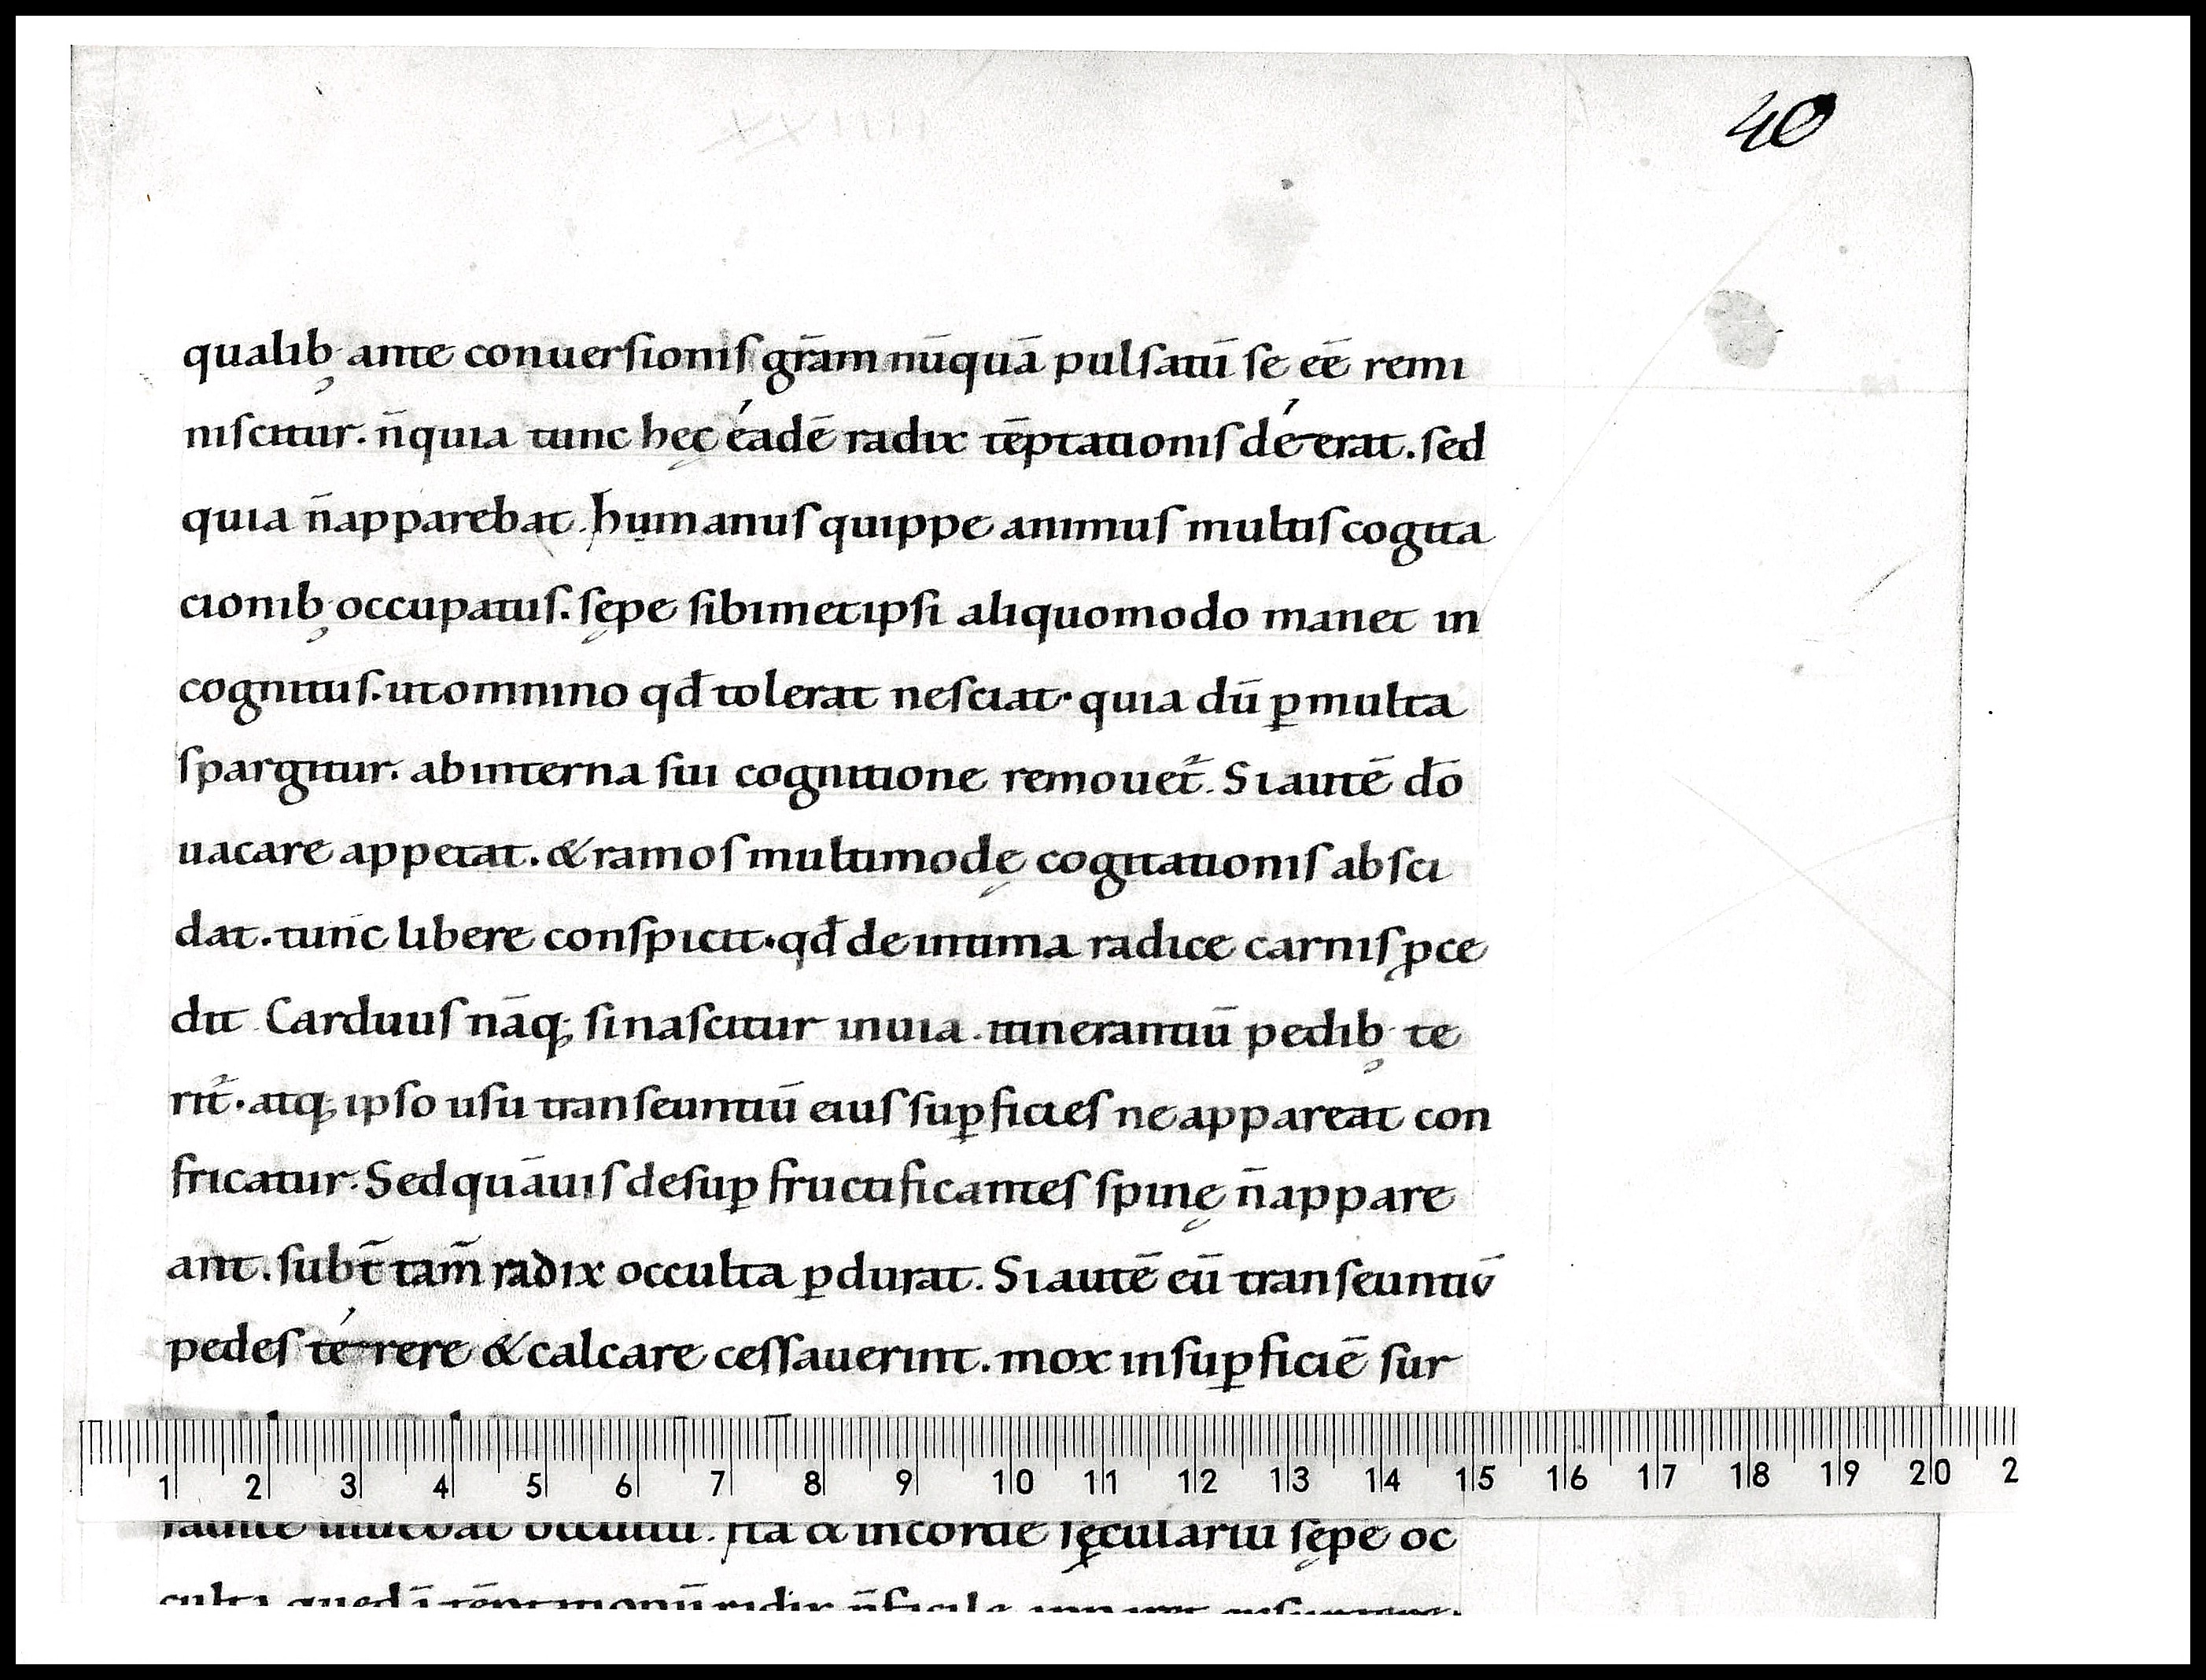 40
qualib; ante conuersionis grām nūquā pulsatū se eē remi
niscitur. n̄ quia tunc hęc éadē radix tēptationis dé erat. sed
quia n̄ apparebat. humanus quippe animus multis cogita
cionib; occupatus. sępe sibimet ipsi aliquomodo manet in
cognitus. ut omnino qđ tolerat nesciat. quia dū ꝑ multa
spargitur. ab interna sui cognitione remouet᷑. Si autē dō
uacare appetat. & ramos multimodę cogitationis absci
dat. tunc libere conspicit. qđ de intima radice carnis ꝓce
dit Carduus nāq; si nascitur in uia. itinerantiū pedib; te
rit᷑. atq; ipso usu transeuntiū eius suꝑficies ne appareat con
fricatur. Sed quāuis desuꝑ fructificantes spinę n̄ appare
ant. subt̄ tam̄ radix occulta ꝑdurat. Si autē eū transeuntiv̄
pedes té rere & calcare cessauerint. mox in suꝑficiē sur
1 2 3 4 5 6 7 8 9 10 11 12 13 14 15 16 17 18 19 20 2
radice occultū. Ita & in corde sęculariū sępe oc
culta quedā tēptationū radix n̄ facile